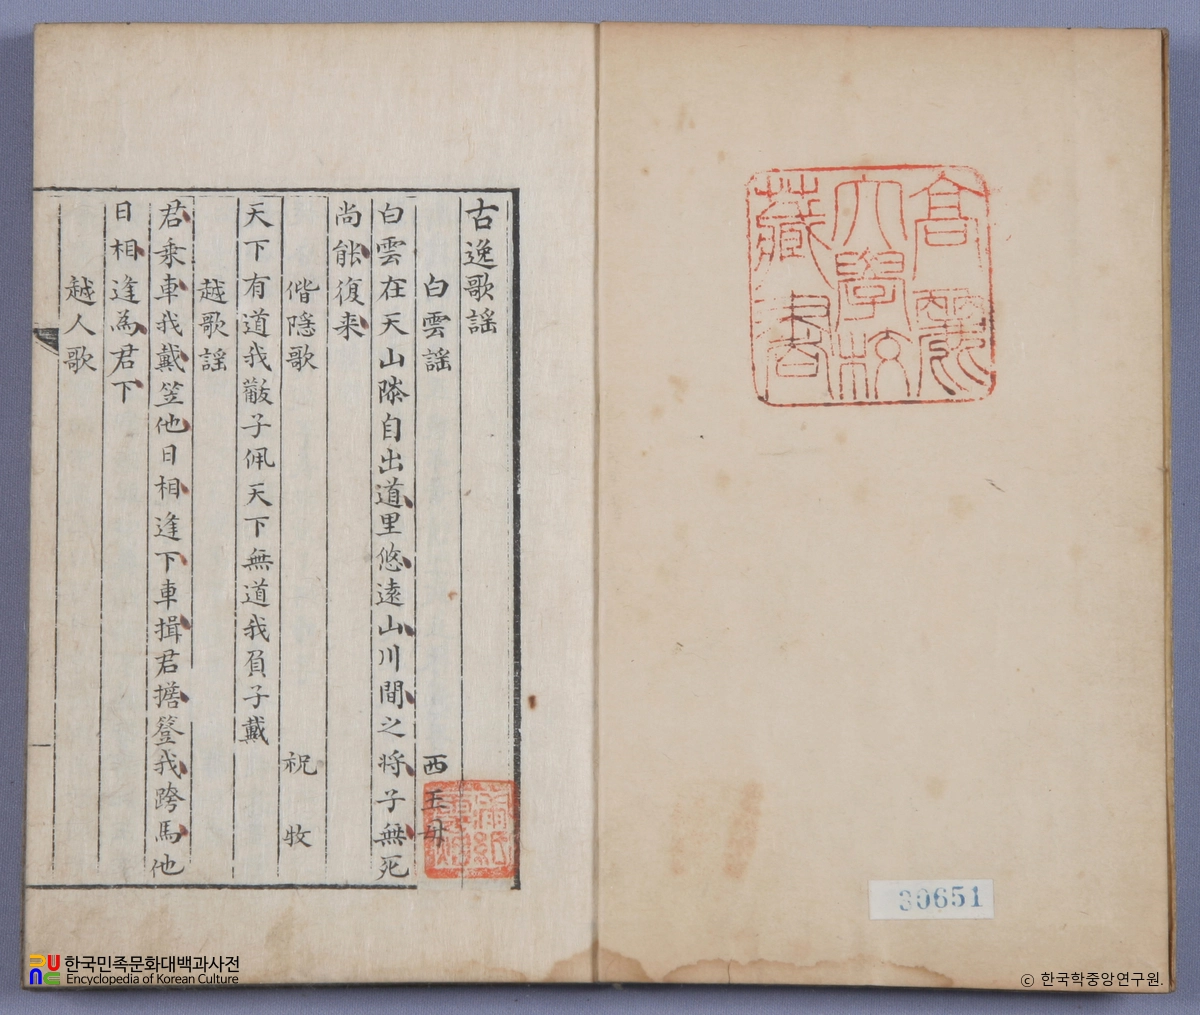 高麗
大學校
藏書
古逸歌謡
白雲謡 西王母
白雲在天山自出道里悠逺山川間之将子無死
尚能復来
偕隱歌 祝牧
天下有道我黻子佩天下無道我負子戴
越歌謡
君乗車我戴笠他日相逢下車揖君擔簦我跨馬他
日相逢為君下
越人歌
30651
한국민족문화대백과사전
Encyclopedia of Korean Culture
© 한국학중앙연구원.